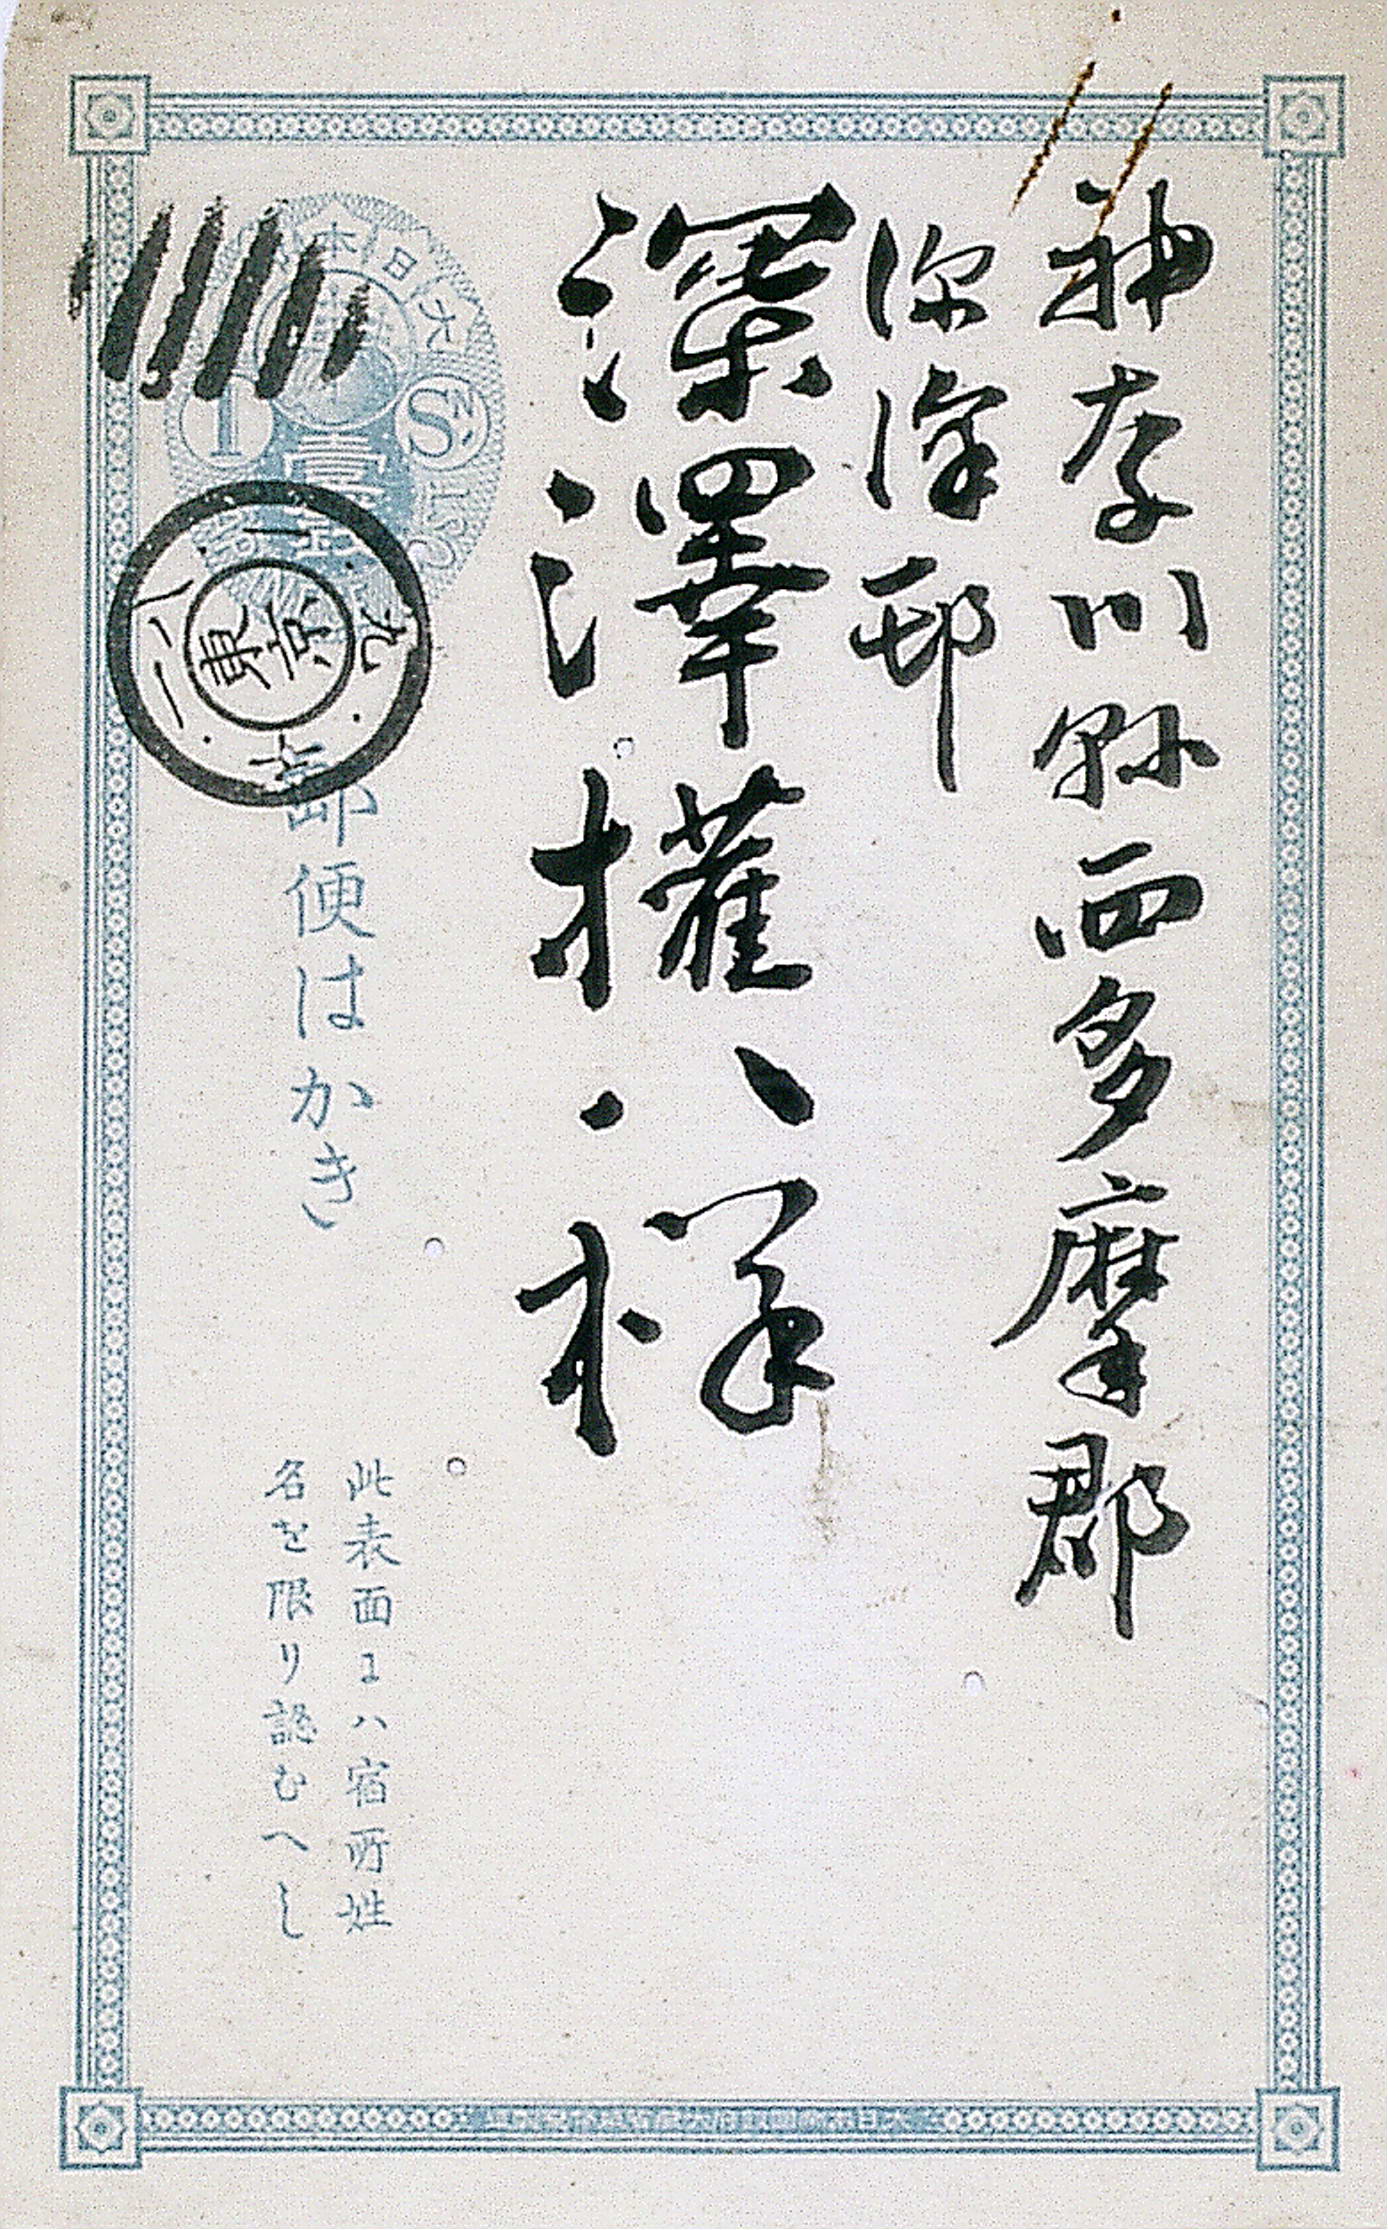 神奈川縣西多摩郡
深澤邨
深澤權八様
大日本
壹銭
1 S
東京
郵便はかき
此表面にハ宿所姓
名を限り認むへし